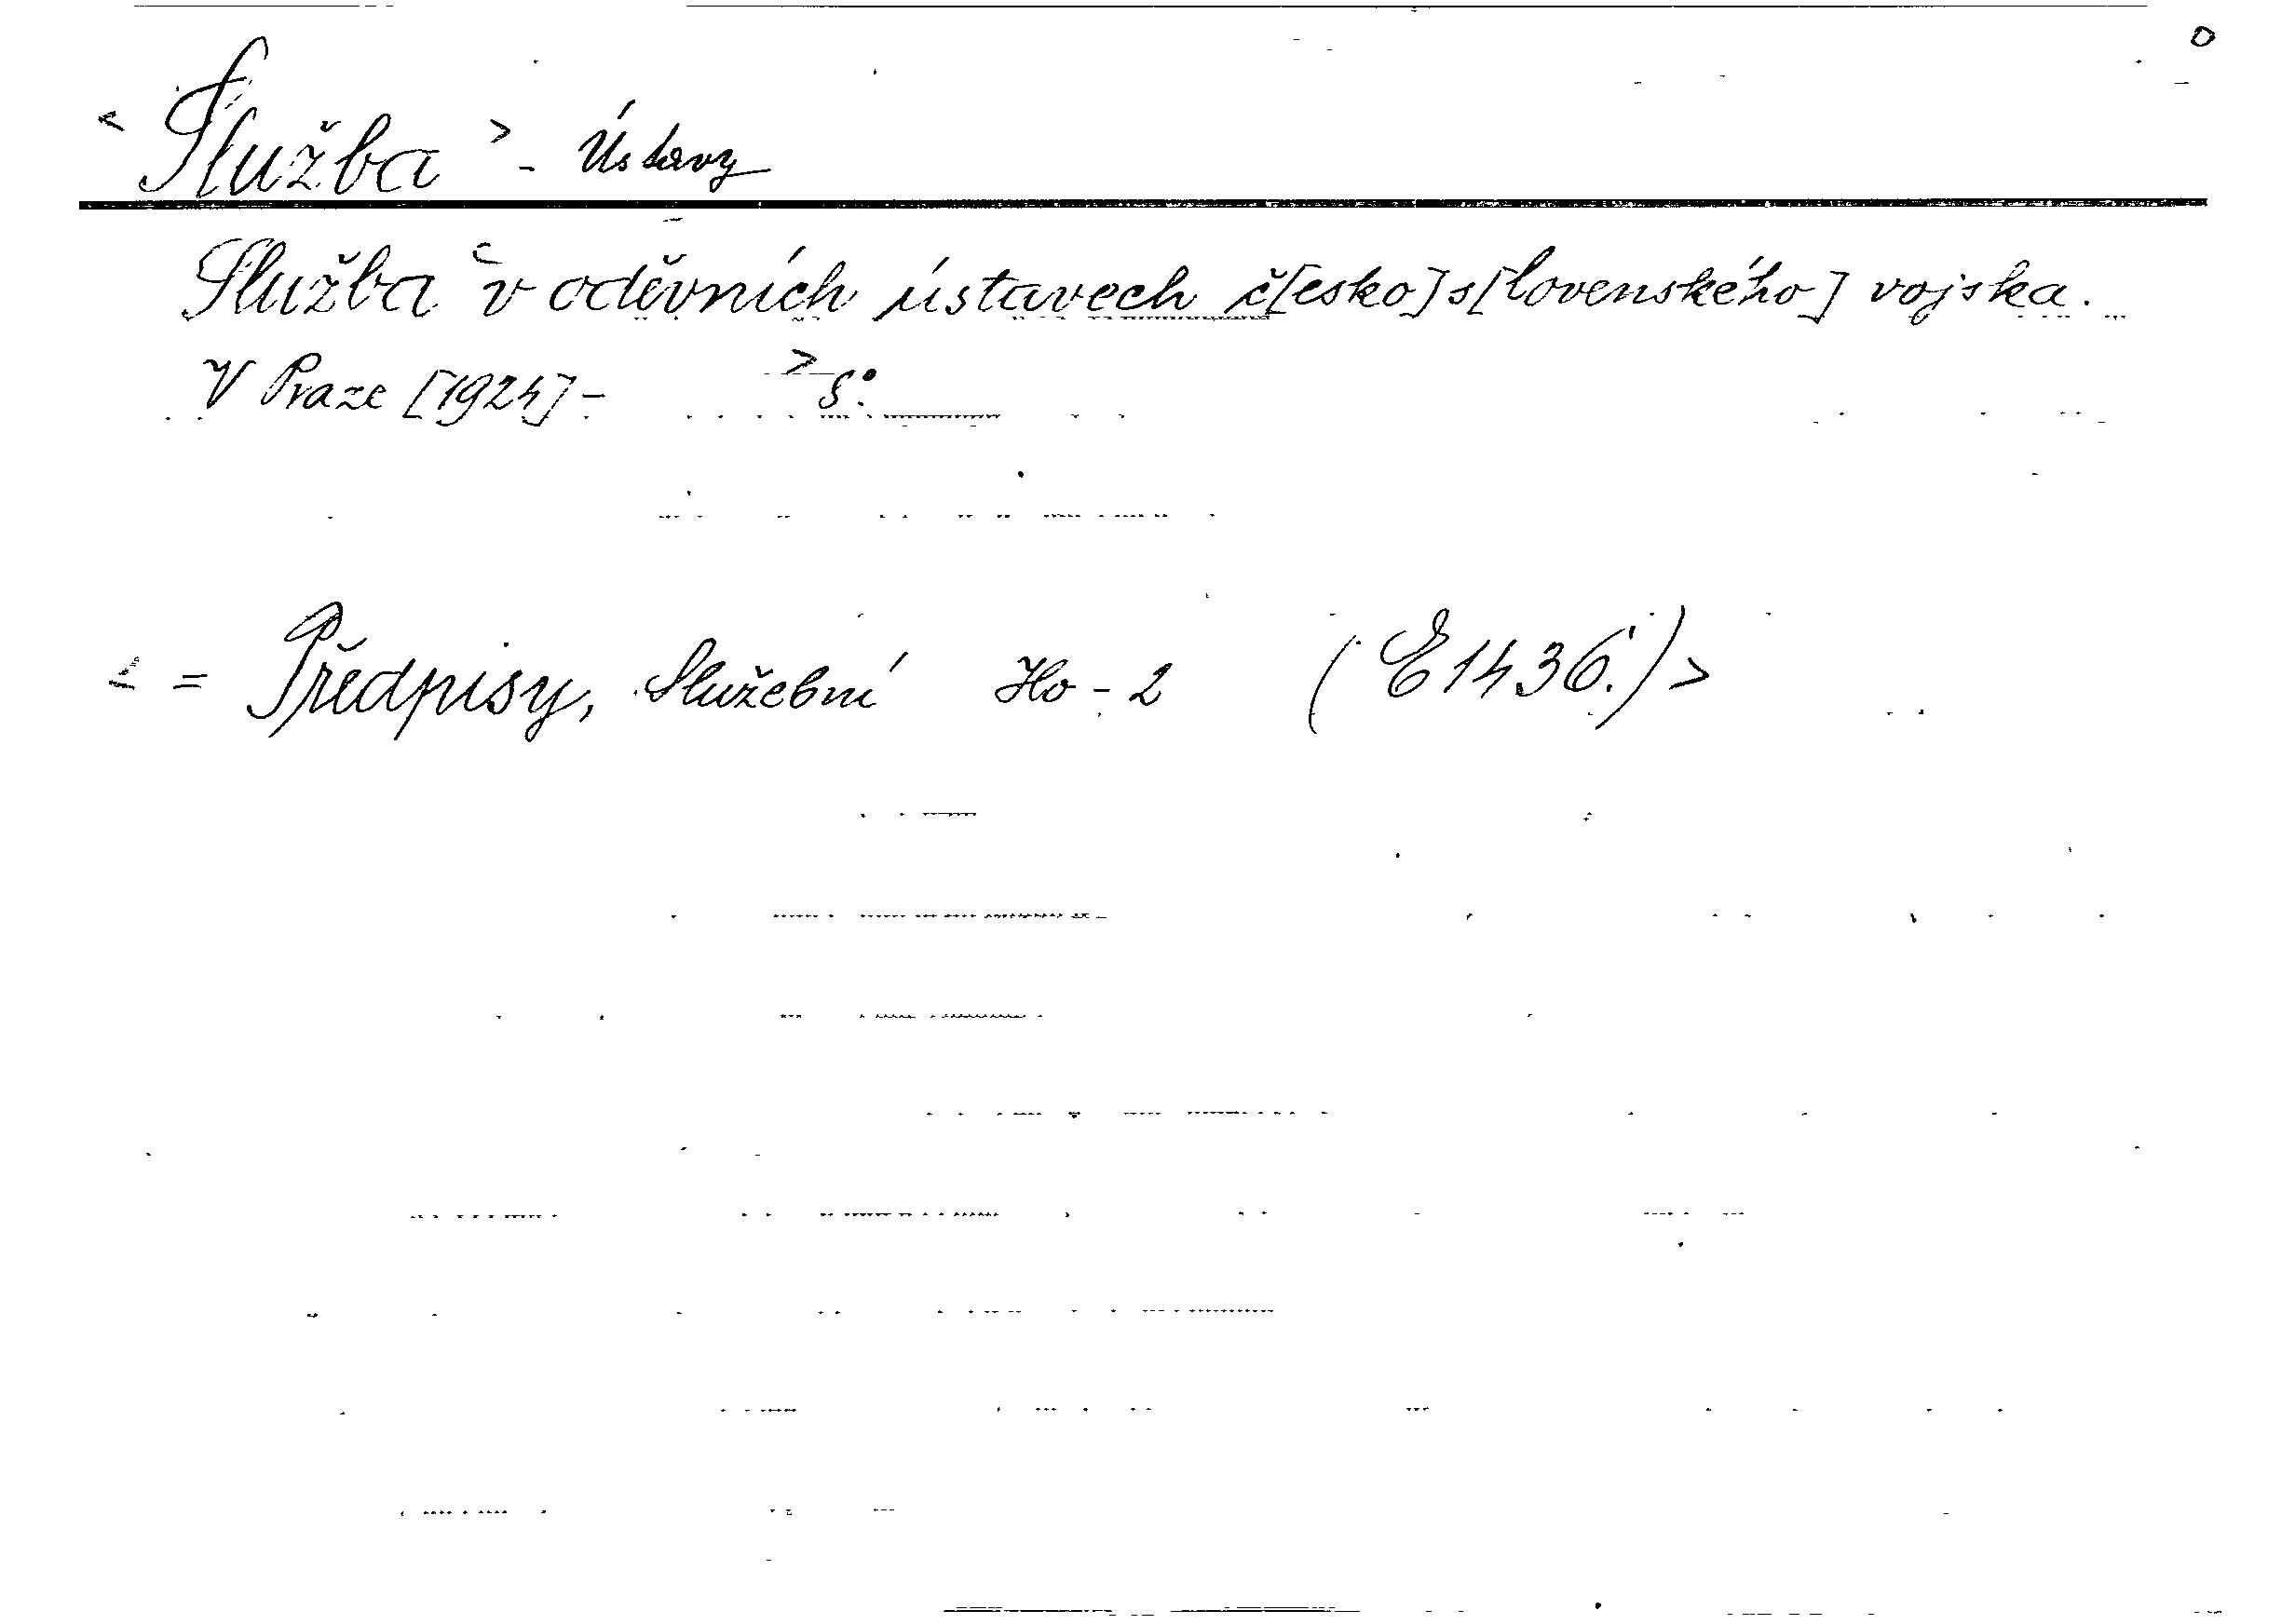 o
< Služba > - Ústavy
Služba v oděvních ústavech č[esko]s[lovenského] vojska.
V Praze [1924] - > 8°.
< = Předpisy, Služební Ho - 2 (E 1436.) >